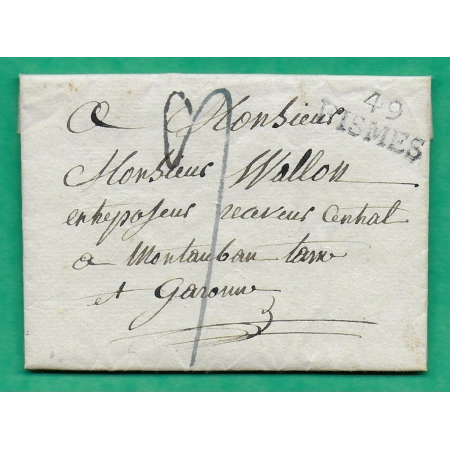 49
FISMES
a Monsieur
Monsieur Wallon
entreposeur receveur Central
a Montauban tarn
et Garonne